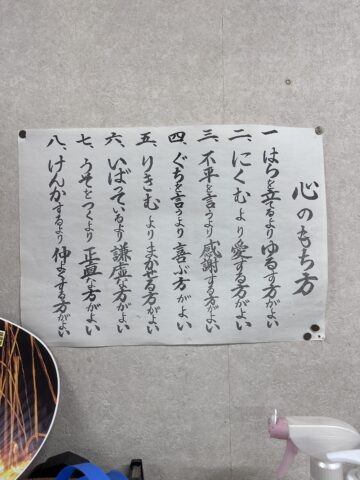 心のもち方
一、はらを立てるよりゆるす方がよい
二、にくむより愛する方がよい
三、不平を言うより感謝する方がよい
四、ぐちを言うより喜ぶ方がよい
五、りきむよりまかせる方がよい
六、いばっているより謙虚な方がよい
七、うそをつくより正直な方がよい
八、けんかするより仲よくする方がよい